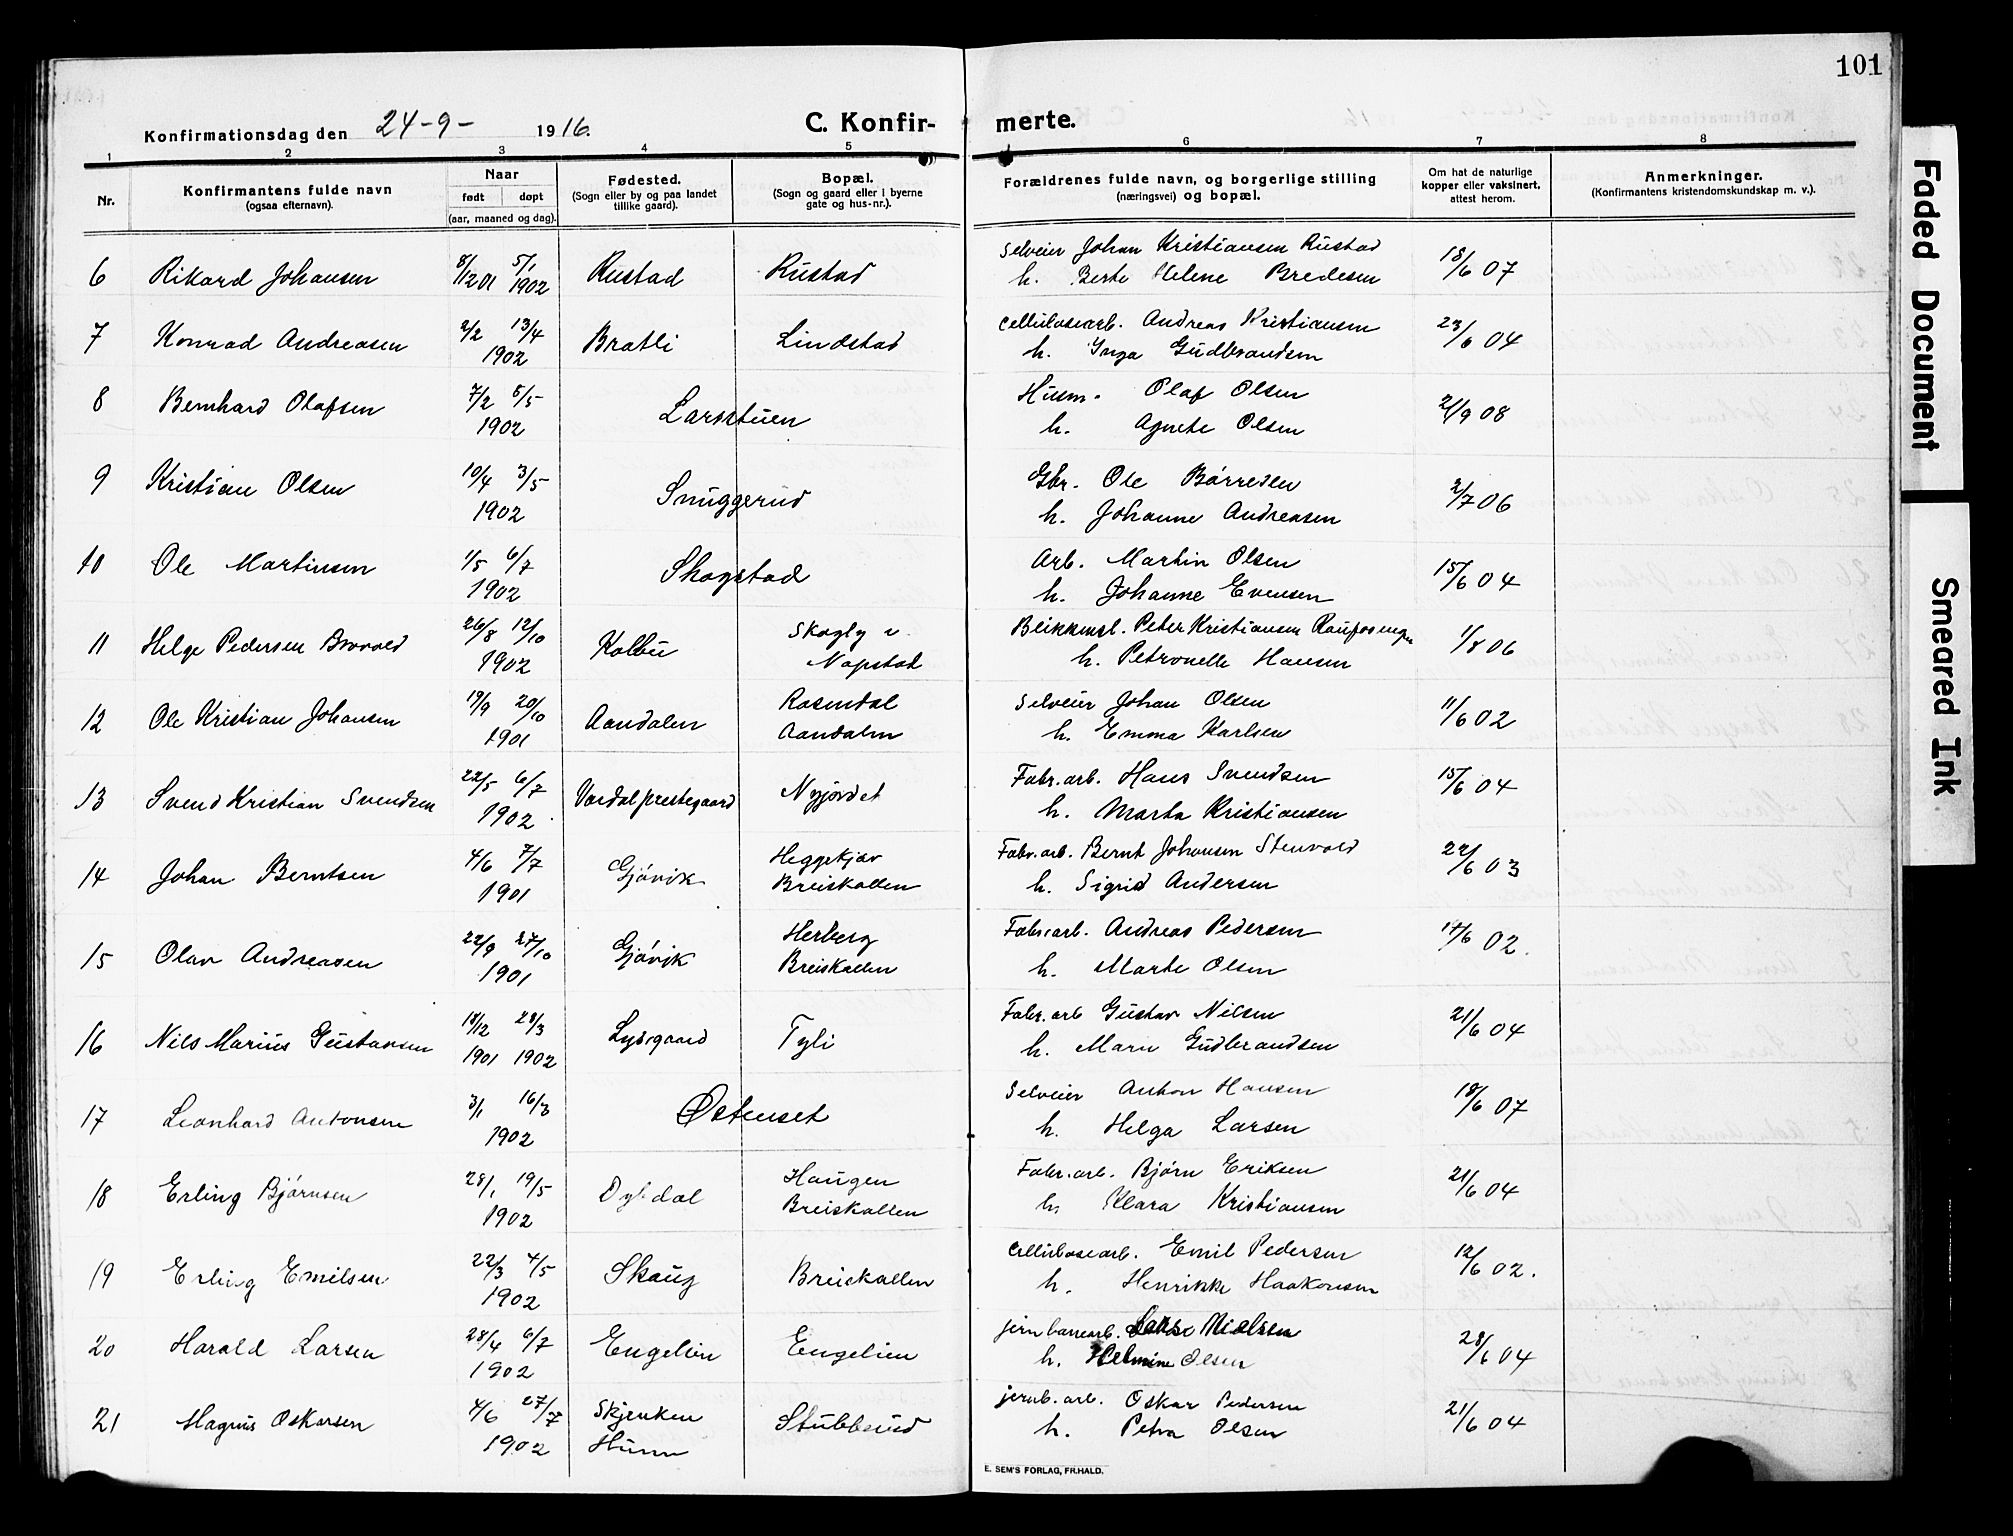 101
Konfirmationsdag den 24-9- 1916.
C. Konfir- merte.
1 2 3 4 5 6 7 8
Nr.
Konfirmantens fulde navn
(ogsaa efternavn).
Naar
født døpt
(aar, maaned og dag).
Fødested.
(Sogn eller by og paa landet
tillike gaard).
Bopæl.
(Sogn og gaard eller i byerne
gate og hus-nr.).
Forældrenes fulde navn, og borgerlige stilling
(næringsvei) og bopæl.
Om hat de naturlige
kopper eller vaksinert,
attest herom.
Anmerkninger.
(Konfirmantens kristendomskundskap m. v.).
6 Rikard Johansen 8/12 01 5/1 1902 Rustad Rustad Selveier Johan Kristiansen Rustad 18/6 07
h. Berte Helene Bredesen
7 Konrad Andreasen 2/2 13/4 Bratli Lindstad Cellulosearb. Andreas Kristiansen 23/6 04
1902 h. Inga Gudbrandsen
8 Bernhard Olafsen 7/2 5/5 Larsstuen Husm. Olaf Olsen 21/9 08
1902 h. Agnete Olsen
9 Kristian Olsen 10/4 3/5 Snuggerud Gbr. Ole Børresen 2/7 06
1902 h. Johanne Andreasen
10 Ole Martinsen 1/5 6/7 Skogstad Arb. Martin Olsen 15/6 04
1902 h. Johanne Evensen
11 Helge Pedersen Brovold 26/8 12/10 Kolbu Skogly Blikkensl. Peter Kristiansen 1/8 06
1902 Nøpstad h. Petronelle Hansen
12 Ole Kristian Johansen 19/9 20/10 Aandalen Rosendal Selveier Johan Olsen 11/6 02
1901 Aandalen h. Emma Karlsen
13 Svend Kristian Svendsen 22/5 6/7 Vardal prestegaard Nyjordet Fabr.arb. Hans Svendsen 15/6 04
1902 h. Marta Kristiansen
14 Johan Berntsen 4/6 7/7 Gjøvik Heggekjær Fabr.arb. Bernt Johansen Stenvold 22/6 03
1901 Breiskallen h. Sigrid Andersen
15 Olav Andreasen 22/9 27/10 Gjøvik Herberg Fabr.arb. Andreas Pedersen 17/6 02.
1901 Breiskallen h. Marte Olsen
16 Nils Marius Gustavsen 18/12 28/3 Lydsgaard Tyli Fabr.arb Gustav Nilsen 21/6 04
1901 1902 h. Maru Gudbrandsen
17 Leonhard Antonsen 3/1 16/3 Østenset Selveier Anton Hansen 18/6 07
1902 h. Helga Larsen
18 Erling Bjørnsen 28/1 19/5 Haugen Fabr.arb. Bjørn Eriksen 21/6 04
1902 Breiskallen h. Klara Kristiansen
19 Erling Emilsen 22/3 4/5 Skaug Breiskallen Cellulosearb. Emil Pedersen 12/6 02.
1902 h. Henrikke Haakonsen
20 Harald Larsen 28/4 6/7 Engelien Engelien jernbanearb. Lars Nielsen 28/6 04
1902 h. Helmine Olsen
21 Magnus Oskarsen 4/6 27/7 Skjenken Stubberud jernb.arb. Oskar Pedersen 21/6 04
1902 Hunn h. Petra Olsen
E. SEM'S FORLAG, FR.HALD.
Faded Document
Smeared Ink